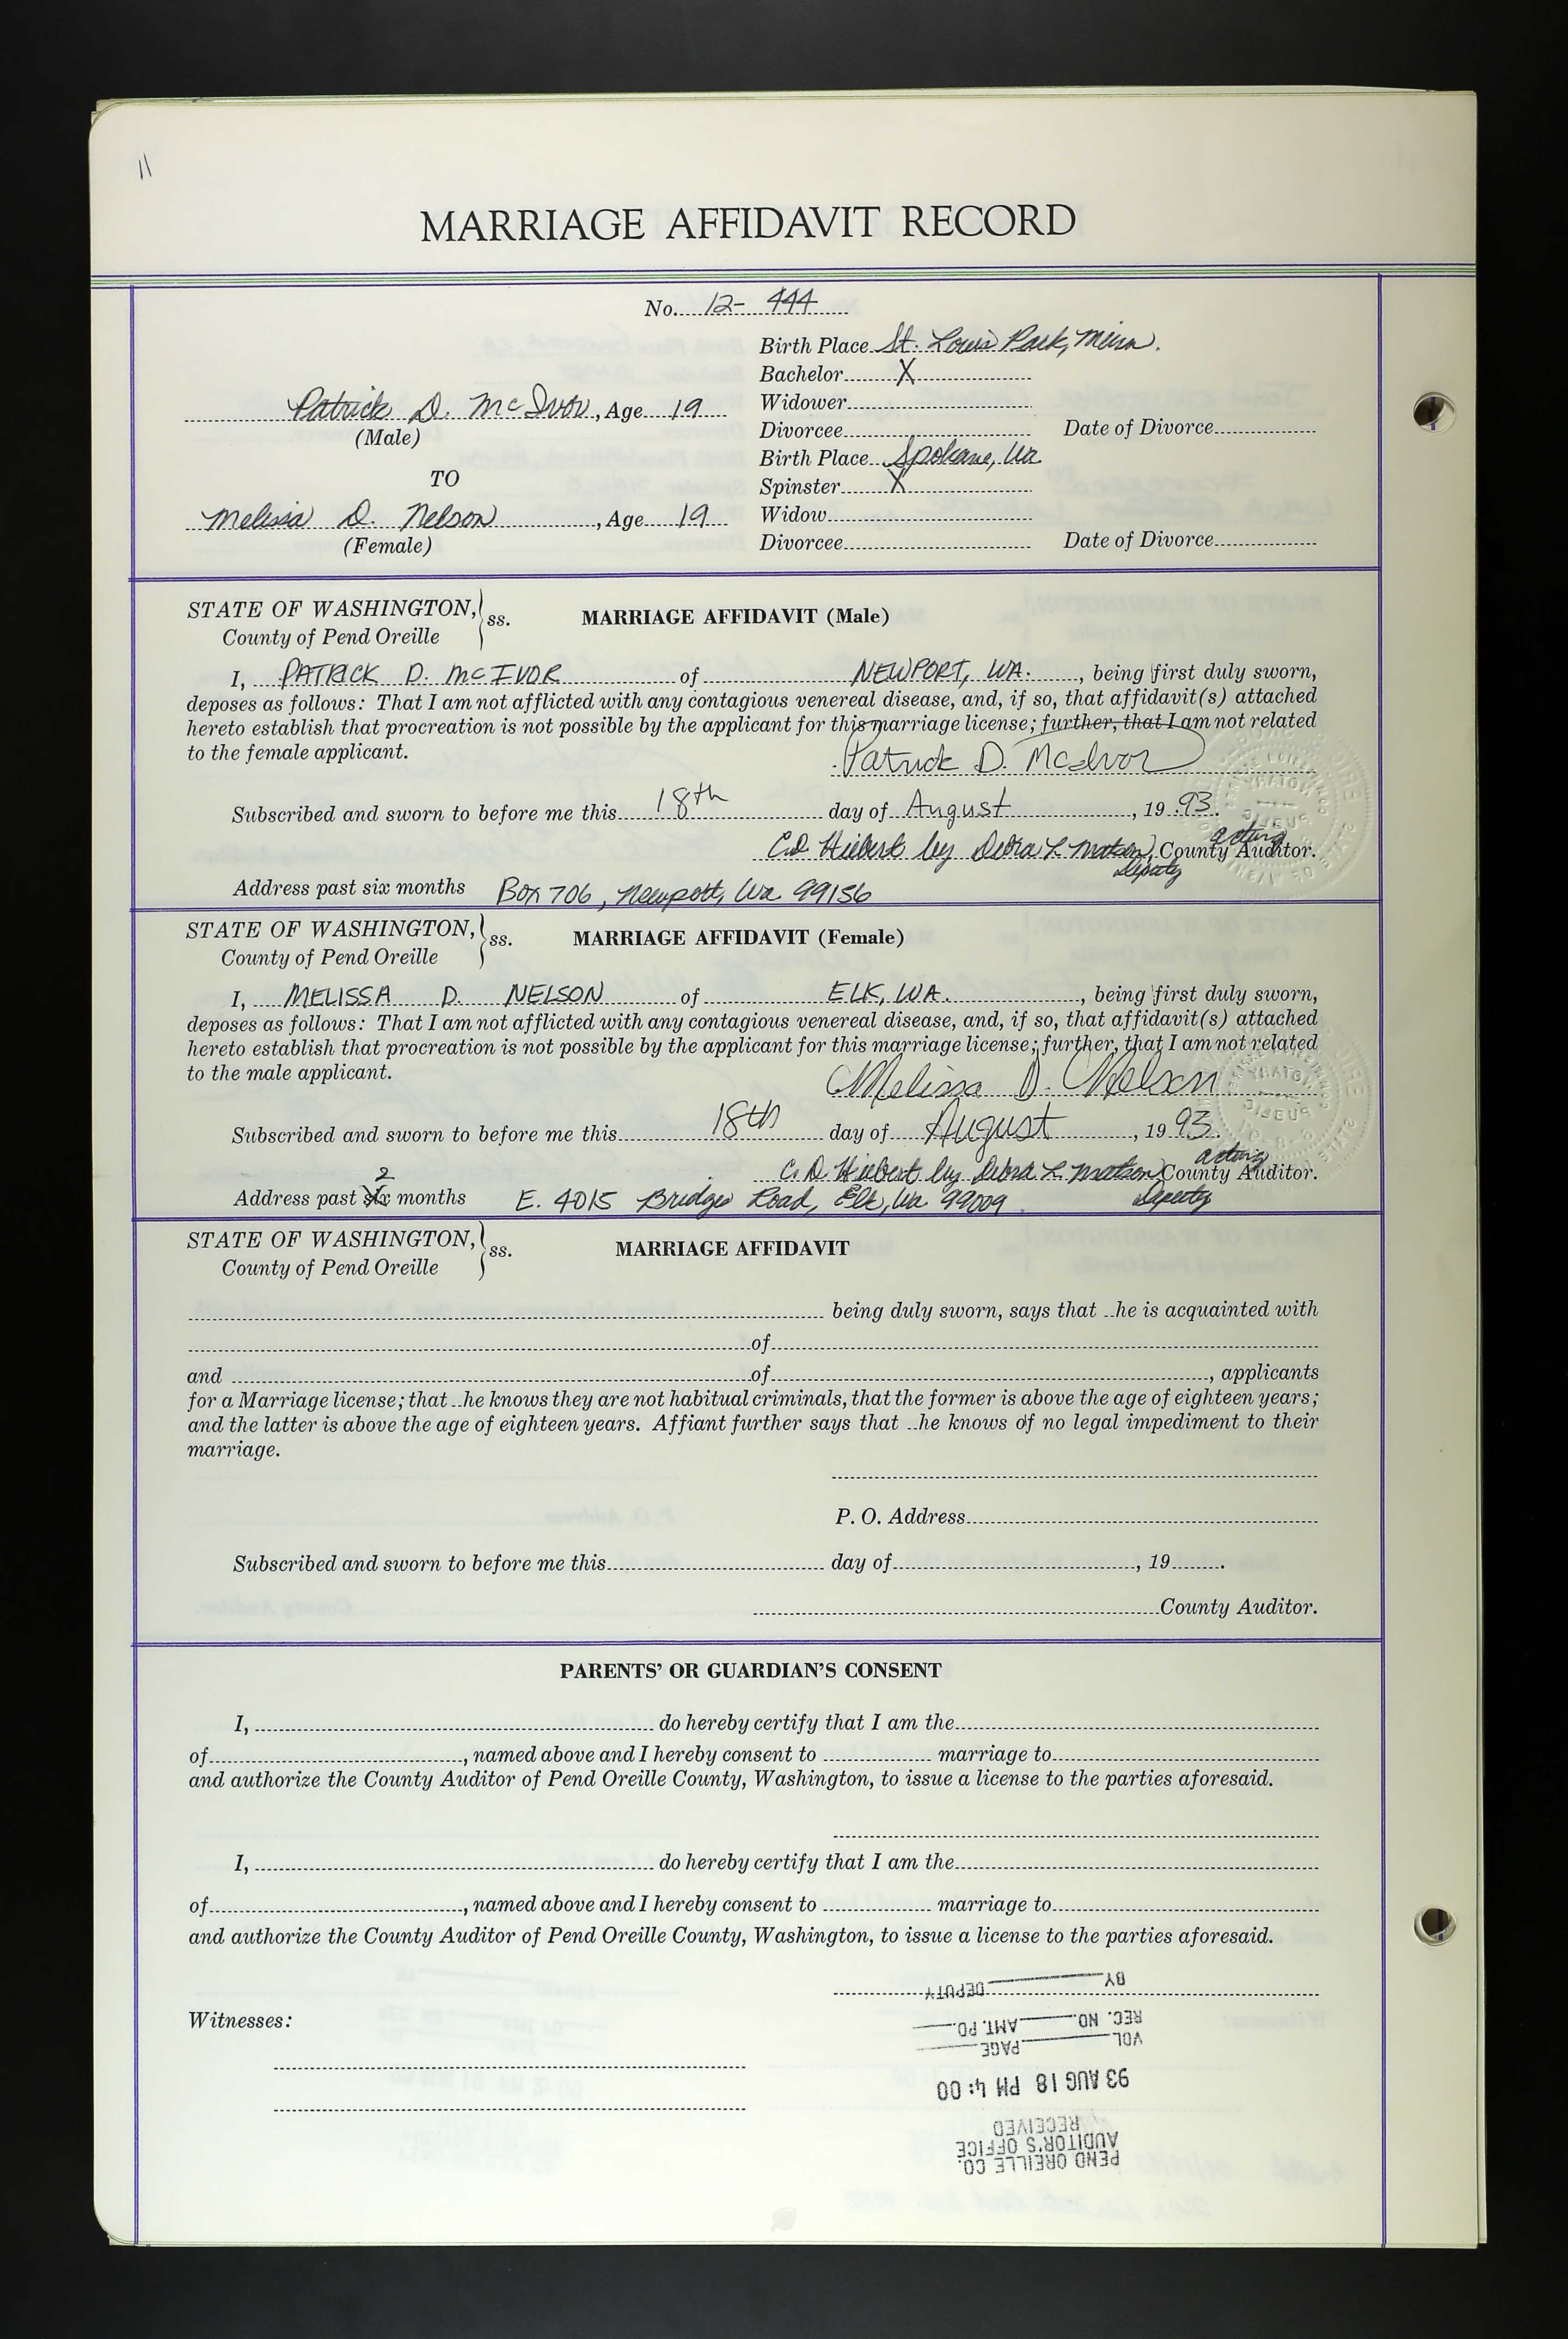 11
MARRIAGE AFFIDAVIT RECORD
No. 12- 444
Birth Place St. Louis Park, Minn.
Bachelor X
Patrick D. McIvor, Age 19
Widower
(Male)
Divorcee Date of Divorce
Birth Place Spokane, Wa
TO
Spinster X
Melissa D. Nelson, Age 19
Widow
(Female)
Divorcee Date of Divorce
STATE OF WASHINGTON, ss. MARRIAGE AFFIDAVIT (Male)
County of Pend Oreille
I, PATRICK D. McIVOR of NEWPORT, WA., being first duly sworn,
deposes as follows: That I am not afflicted with any contagious venereal disease, and, if so, that affidavit(s) attached
hereto establish that procreation is not possible by the applicant for this marriage license; further, that I am not related
to the female applicant.
Patrick D. McIvor
Subscribed and sworn to before me this 18th day of August, 19 93.
acting
C.D. Hiebert by Debra L. Matson, County Auditor.
Deputy
Address past six months Box 706, Newport, Wa 99156
STATE OF WASHINGTON, ss. MARRIAGE AFFIDAVIT (Female)
County of Pend Oreille
I, MELISSA D. NELSON of ELK, WA., being first duly sworn,
deposes as follows: That I am not afflicted with any contagious venereal disease, and, if so, that affidavit(s) attached
hereto establish that procreation is not possible by the applicant for this marriage license; further, that I am not related
to the male applicant.
Melissa D. Nelson
Subscribed and sworn to before me this 18th day of August, 19 93.
acting
C. D. Hiebert by Debra L. Matson County Auditor.
Deputy
2
Address past six months E. 4015 Bridges Road, Elk, Wa 99009
STATE OF WASHINGTON, ss. MARRIAGE AFFIDAVIT
County of Pend Oreille
being duly sworn, says that ..he is acquainted with
of
and of , applicants
for a Marriage license; that ..he knows they are not habitual criminals, that the former is above the age of eighteen years;
and the latter is above the age of eighteen years. Affiant further says that ..he knows of no legal impediment to their
marriage.
P. O. Address
Subscribed and sworn to before me this day of , 19 .
County Auditor.
PARENTS' OR GUARDIAN'S CONSENT
I, do hereby certify that I am the
of , named above and I hereby consent to marriage to
and authorize the County Auditor of Pend Oreille County, Washington, to issue a license to the parties aforesaid.
I, do hereby certify that I am the
of , named above and I hereby consent to marriage to
and authorize the County Auditor of Pend Oreille County, Washington, to issue a license to the parties aforesaid.
Witnesses:
PEND OREILLE CO.
AUDITOR'S OFFICE
RECEIVED
93 AUG 18 PM 4:00
VOL PAGE
REC. NO. AMT. PD.
BY DEPUTY